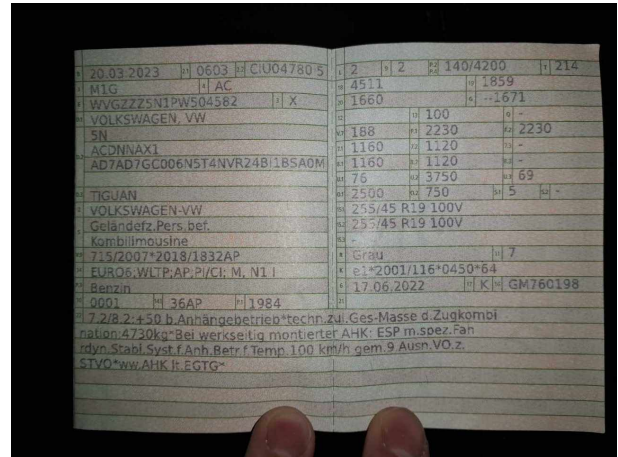 20.03.2023 0603 CIU04780 5
M1G AC
WVGZZZ5N1PW504582 X
VOLKSWAGEN, VW
5N
ACDNNAX1
AD7AD7GC006N5T4NVR24BI1BSA0M
TIGUAN
VOLKSWAGEN-VW
Geländefz.Pers.bef.
Kombilimousine
715/2007*2018/1832AP
EURO6;WLTP;AP;PI/CI; M, N1 I
Benzin
0001 36AP 1984
2 2 140/4200 214
4511 1859
1660 --1671
100 -
188 2230 2230
1160 1120 -
1160 1120 -
76 3750 69
2500 750 5 -
255/45 R19 100V
255/45 R19 100V
-
Grau 7
e1*2001/116*0450*64
17.06.2022 K GM760198
7.2/8.2:+50 b.Anhängebetrieb*techn.zul.Ges-Masse d.Zugkombi
nation:4730kg*Bei werkseitig montierter AHK: ESP m.spez.Fah
rdyn.Stabi.Syst.f.Anh.Betr.f.Temp.100 km/h gem.9.Ausn.VO.z.
STVO*ww.AHK lt.EGTG*